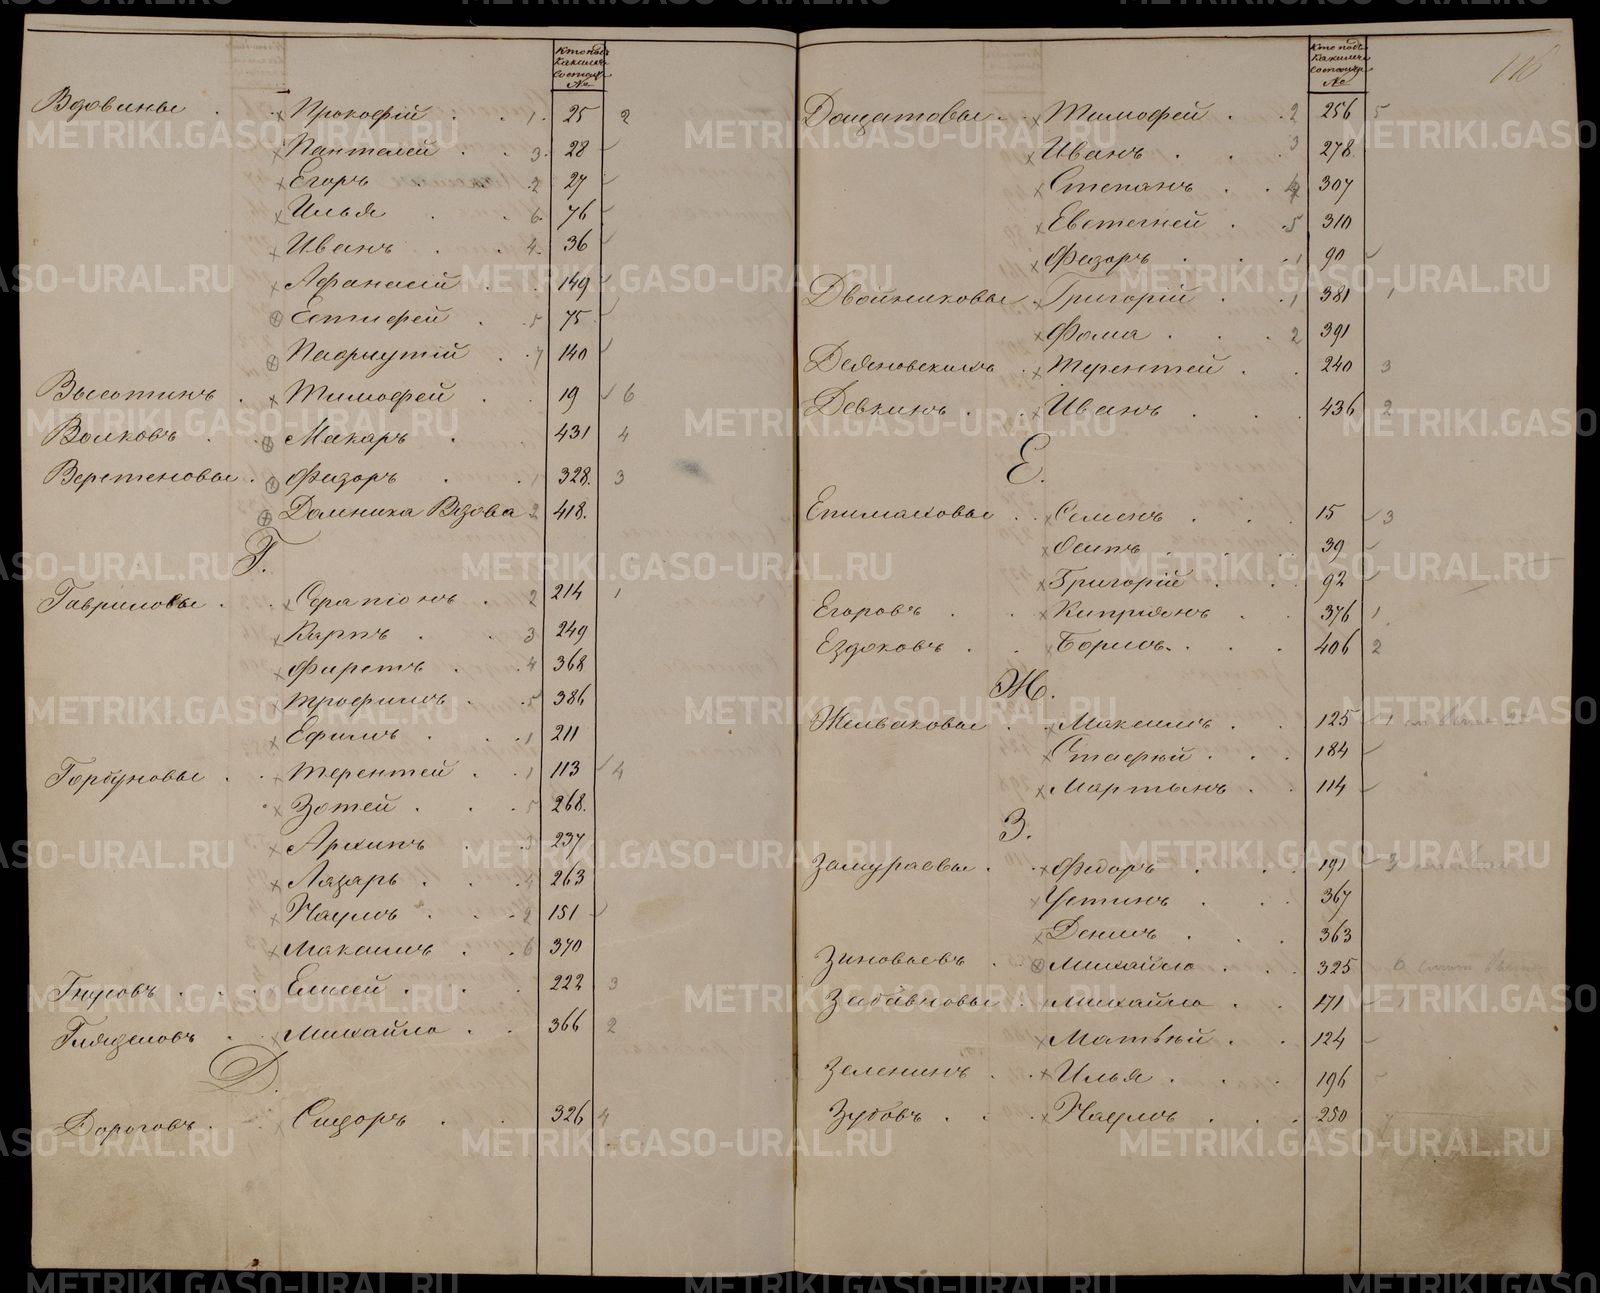 Кто подъ
какимъ
состоитъ
№
Вдовины . × Прокофій . . 1. 25 2
× Пантелей . . 3. 28
× Егоръ . . 2 27
× Илья . . 6. 76
× Иванъ . . 4. 36
× Афанасій . . 149
⊗ Естифей . . 5 75
⊗ Пафнутій . . 7 140
Высотинъ . × Тимофей . . 19 6
Волковъ . ⊗ Макаръ . . 431 4
Веретеновы . ⊗ Федоръ . . 1 328. 3
⊗ Домника Вязова 2 418.
Г.
Гавриловы . × Серапіонъ . 2 214 1
× Карпъ . . 3 249
× Фирстъ . . 4 368
× Трофимъ . . 5 386
× Ефимъ . . 1 211
Горбуновы . . Терентей . . 1 113 4
× Зотей . . . 5 268.
× Архипъ . . 3 237
× Лазарь . . 4 263
× Наумъ . . 2 151
× Максимъ . . 6 370
Гнусовъ . . . Елисей . . . 222 3
Глядецовъ . × Михайло . . 366 2
Д.
Дороговъ . × Сидоръ . . 326 4
116
Кто подъ
какимъ
состоитъ
№
Дощатовы . × Тимофей . . 2 256 5
× Иванъ . . . 3 278
× Степанъ . . 4 307
× Евстегней . . 5 310
× Федоръ . . . 1 90
Двойниковы . × Григорій . . 1 381 1
× Фома . . . 2 391
Деяновскихъ . × Терентей . . 240 3
Девкинъ . . Иванъ . . . 436 2
Е.
Епимаховы . × Семенъ . . . 15 3
× Осипъ . . . 39
× Григорій . . 92
Егоровъ . . Кипріянъ . . 376 1
Ездоковъ . . Борисъ . . . 406 2
Ж.
Желваковы . × Максимъ . . 125 1
× Стафѣй . . . 184
× Мартынъ . . 114
З.
Замураевы . × Федоръ . . . 191 3
× Устинъ . . . 367
× Денисъ . . . 363
Зиновьевъ . ⊗ Михайло . . . 325 6
Забавновы . Михайло . . 171 1
× Матвѣй . . 124
Зеленинъ . . × Илья . . . 196
Зубовъ . . . × Наумъ . . . 250
METRIKI.GASO-URAL.RU